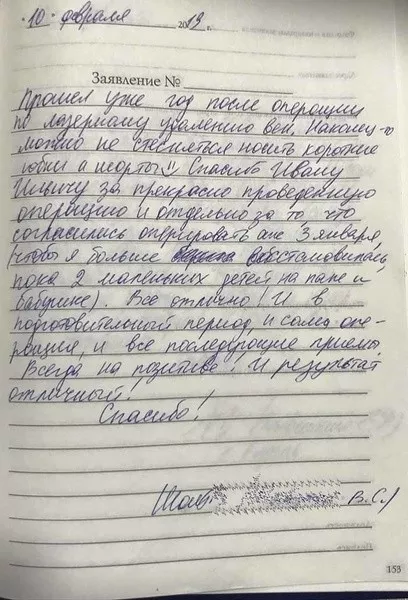 10 февраля 2019 г.
Заявление №
Прошел уже год после операции
по лазерному удалению вен. Наконец-то
можно не стесняться носить короткие
юбки и шорты!! Спасибо Ивану
Ильичу за прекрасно проведенную
операцию и отдельно за то что
согласились оперировать аж 3 января,
(чтобы я больше восстановилась,
пока 2 маленьких детей на папе и
бабушке). Все отлично! И в
подготовительный период, и сама опе-
рация, и все последующие приемы.
Всегда на позитиве! И результат
отличный!
Спасибо!
В.С.)
153